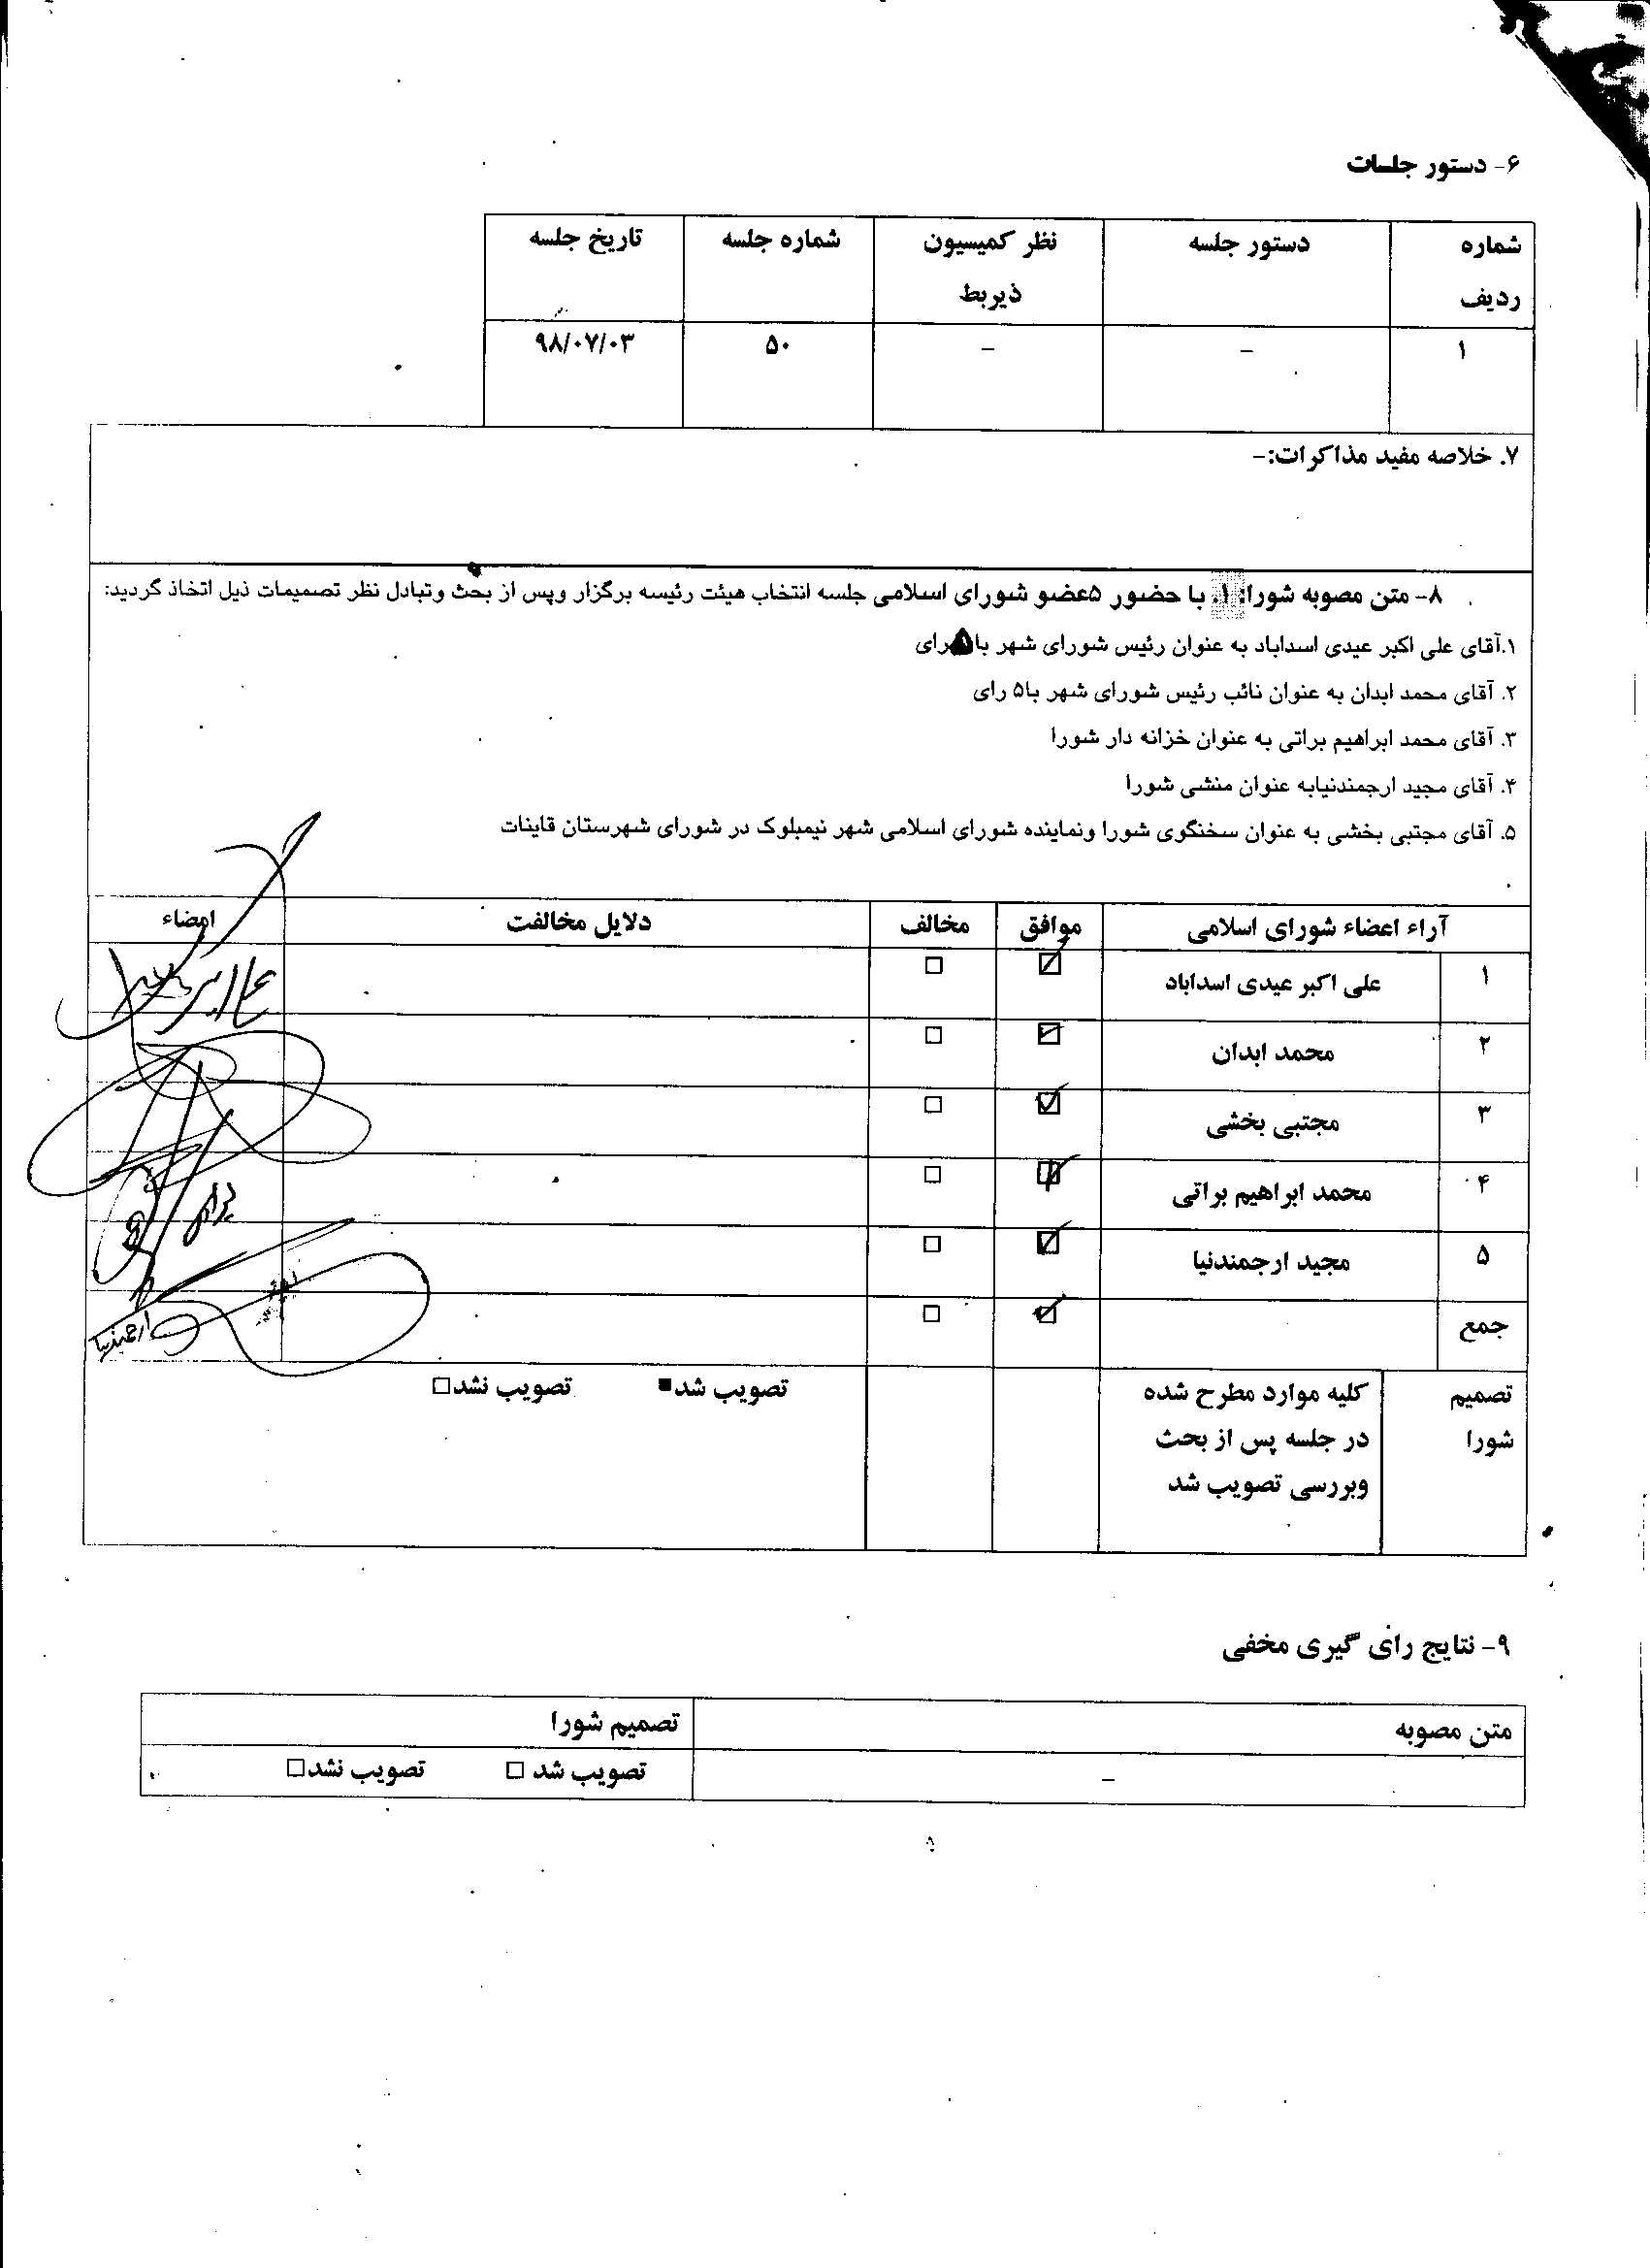 ۶- دستور جلسات
شماره ردیف دستور جلسه نظر کمیسیون ذیربط شماره جلسه تاریخ جلسه
۱ - - ۵۰ ۹۸/۰۷/۰۳
۷. خلاصه مفید مذاکرات:-
۸- متن مصوبه شورا: ۱. با حضور ۵عضو شورای اسلامی جلسه انتخاب هیئت رئیسه برگزار وپس از بحث وتبادل نظر تصمیمات ذیل اتخاذ گردید:
۱.آقای علی اکبر عیدی اسداباد به عنوان رئیس شورای شهر با۵ رای
۲. آقای محمد ابدان به عنوان نائب رئیس شورای شهر با۵ رای
۳. آقای محمد ابراهیم براتی به عنوان خزانه دار شورا
۴. آقای مجید ارجمندنیابه عنوان منشی شورا
۵. آقای مجتبی بخشی به عنوان سخنگوی شورا ونماینده شورای اسلامی شهر نیمبلوک در شورای شهرستان قاینات
آراء اعضاء شورای اسلامی موافق مخالف دلایل مخالفت امضاء
۱ علی اکبر عیدی اسداباد ☑ □
۲ محمد ابدان ☑ □
۳ مجتبی بخشی ☑ □
۴ محمد ابراهیم براتی ☑ □
۵ مجید ارجمندنیا ☑ □
جمع ☑ □
ارجمندنیا
تصمیم شورا کلیه موارد مطرح شده تصویب شد■ تصویب نشد□
در جلسه پس از بحث
وبررسی تصویب شد
۹- نتایج رای گیری مخفی
متن مصوبه تصمیم شورا
- تصویب شد □ تصویب نشد□